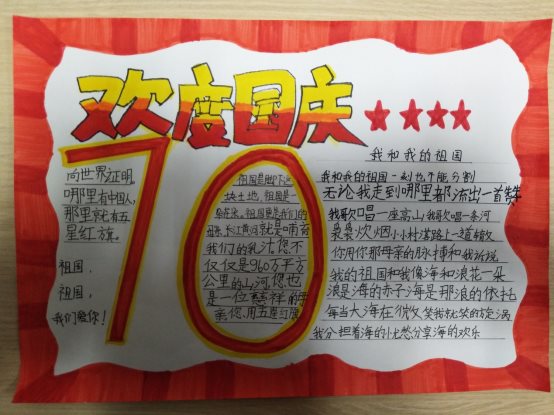 欢度国庆
70
向世界证明,
哪里有中国人,
那里就有五
星红旗。
祖国,
祖国,
我们爱你!
祖国是脚下这
块土地,祖国是一
祖国更是我们的
母亲,长江黄河就是哺育
我们的乳汁,您不
仅仅是960万平方
公里的山河,您也
是一位慈祥的母
亲,您用五座红
我和我的祖国
我和我的祖国一刻也不能分割
无论我走到哪里都流出一首赞
我歌唱一座高山我歌唱一条河
袅袅炊烟小小村落路上一道辙
你用你那母亲的脉搏和我诉说
我的祖国和我像海和浪花一朵
浪是海的赤子海是那浪的依托
每当大海在微笑我就笑的旋涡
我分担着海的忧愁分享海的欢乐